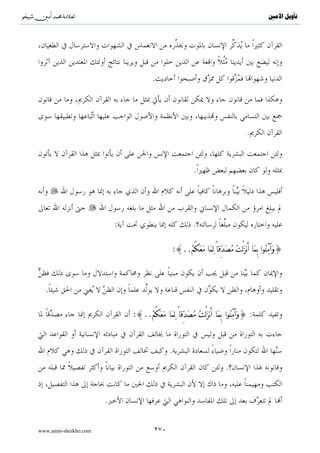 تأويل الأمين
العلامة محمد أمين شيخو
القرآن كثيراً ما يُذكِّر الإنسان بالموت ويحذِّره من الانغماس في الشهوات والاسترسال في الطغيان،
وإنه ليضع بين أيدينا مُثُلاً واقعة عن الذين خلوا من قبل ويرينا نتائج أولئك المعتدين الذين آثروا
الدنيا وشهواتها فمُزِّقوا كل ممزَّق وأصبحوا أحاديث.
وهكذا فما من قانون جاء ولا يمكن لقانون أن يأتي بمثل ما جاء به القرآن الكريم، وما من قانون
جمع بين التسامي بالنفس وتهذيبها، وبين الأنظمة والأصول الواجب عليها اتّباعها وتطبيقها سوى
القرآن الكريم.
ولئن اجتمعت البشرية كلها، ولئن اجتمعت الإنس والجن على أن يأتوا بمثل هذا القرآن لا يأتون
بمثله ولو كان بعضهم لبعض ظهيراً.
أفليس هذا دليلاً بيِّناً وبرهاناً كافياً على أنه كلام الله وأن الذي جاء به إنما هو رسول الله ﷺ وأنه
لم يبلغ امرؤ من الكمال الإنساني والقرب من الله مثل ما بلغه رسول الله ﷺ حتى أنزله الله تعالى
عليه واختاره ليكون مبلِّغاً لرسالته؟. ذلك كله إنما ينطوي تحت آية:
﴿وَآمِنُوا بِمَا أَنْزَلْتُ مُصَدِّقاً لِمَا مَعَكُمْ..﴾:
والإيمان كما بيَّنا من قبل يجب أن يكون مبنياً على نظر ومحاكمة واستدلال وما سوى ذلك فظنٌّ
وتقليد وأوهام، والظن لا يكوِّن في النفس قناعة ولا يولِّد علماً وإن الظنَّ لا يُغني من الحق شيئاً.
وتفيد كلمة: ﴿وَآمِنُوا بِمَا أَنْزَلْتُ مُصَدِّقاً لِمَا مَعَكُمْ..﴾: أن القرآن الكريم إنما جاء مصدِّقاً لما
جاءت به التوراة من قبل وليس في التوراة ما يخالف القرآن في مبادئه الإنسانية أو القواعد التي
سنَّها الله لتكون مناراً وضياءً لسعادة البشرية. وكيف تخالف التوراة القرآن في ذلك وهي كلام الله
وقانونه لهذا الإنسان؟. ولئن كان القرآن الكريم أوسع من التوراة بياناً وأكثر تفصيلاً مما قبله من
الكتب ومهيمناً عليه، وما ذاك إلا لأن البشرية في ذلك الحين ما كانت بحاجة إلى هذا التفصيل، إذ
أنها لم تتعرَّف بعد إلى تلك المفاسد والنواهي التي عرفها الإنسان الأخير.
٢٧٠
www.amin-sheikho.com